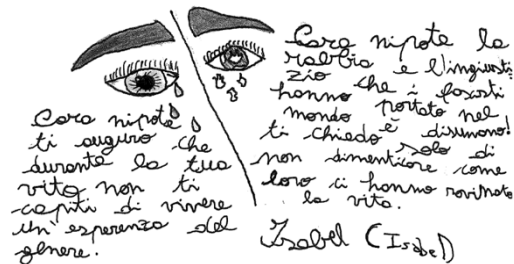 Cara nipote
ti auguro che
durante la tua
vita non ti
capiti di vivere
un'esperienza del
genere.
Cara nipote la
rabbia e l'ingiusti-
zia che i fascisti
hanno portato nel
mondo è disumano!
ti chiedo solo di
non dimenticare come
loro ci hanno rovinato
la vita.
Isabel (Isabel)